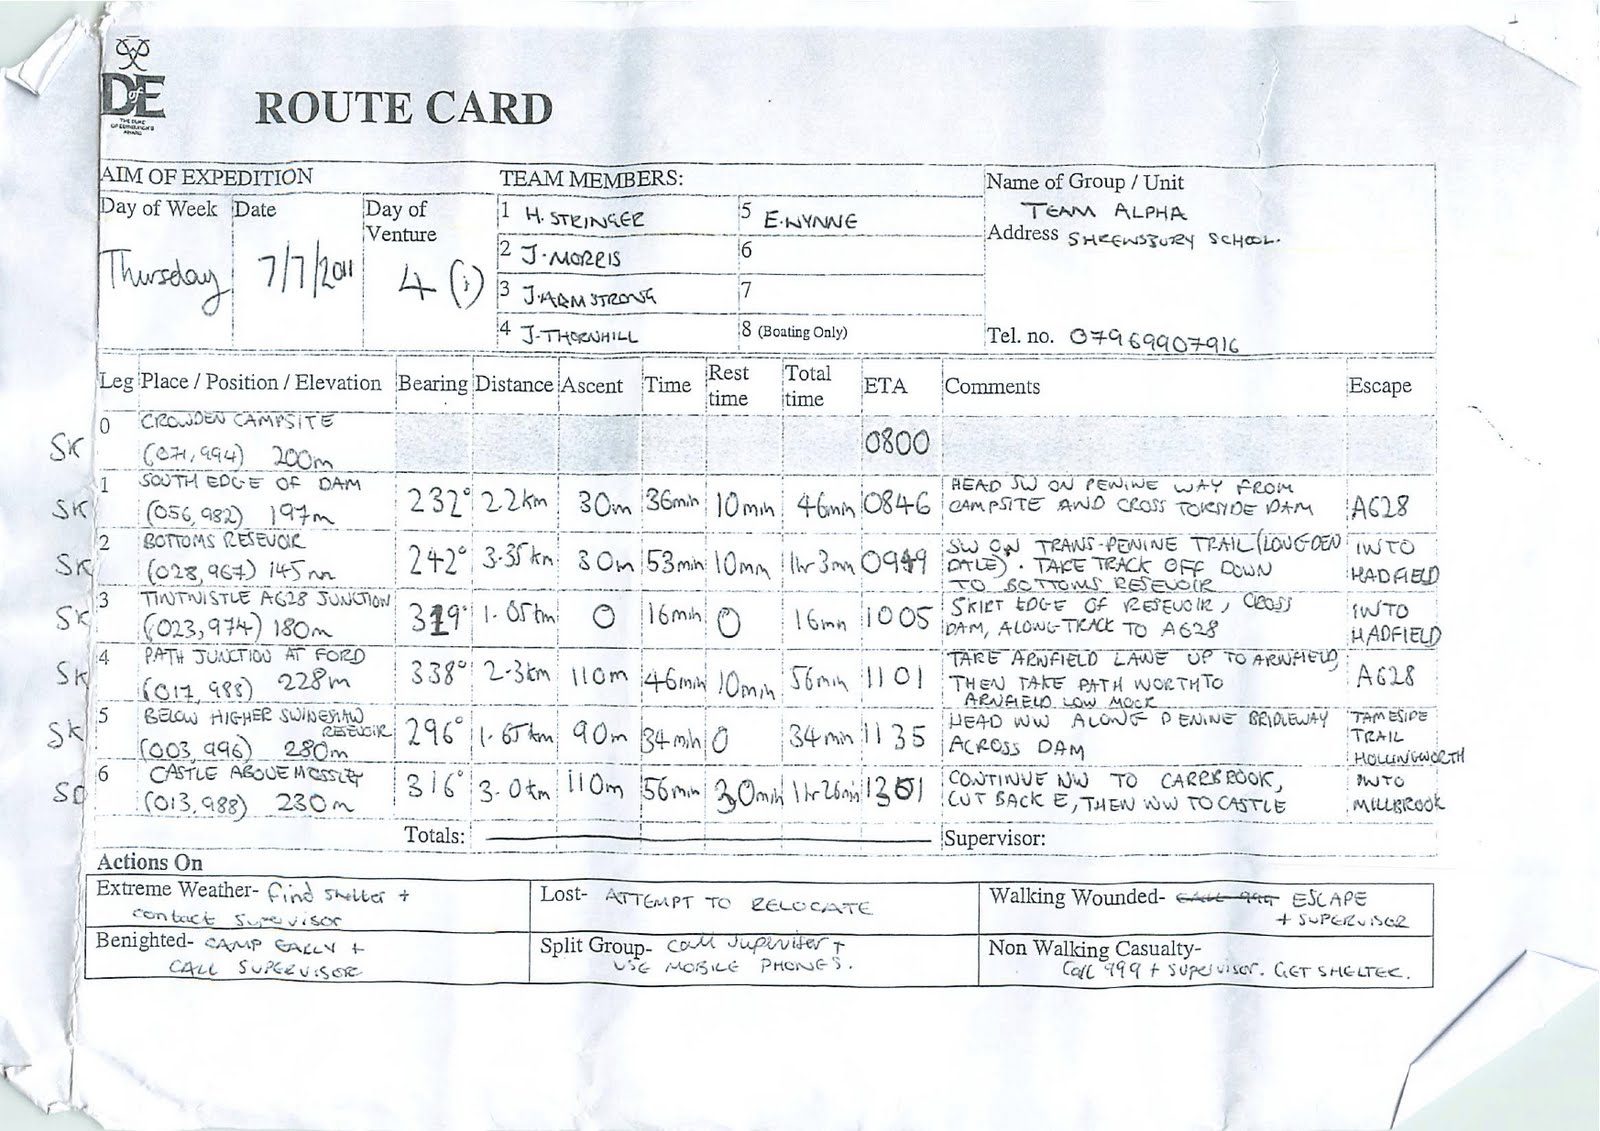 DofE
THE DUKE
OF EDINBURGH'S
AWARD
ROUTE CARD
AIM OF EXPEDITION
Day of Week Date Day of Venture
Thursday 7/7/2011 4 (i)
TEAM MEMBERS:
1 H. STRINGER 5 E. WYNNE
2 J. MORRIS 6
3 J. ARMSTRONG 7
4 J. THORNHILL 8 (Boating Only)
Name of Group / Unit
TEAM ALPHA
Address SHREWSBURY SCHOOL.
Tel. no. 07969907916
Leg Place / Position / Elevation Bearing Distance Ascent Time Rest time Total time ETA Comments Escape
0 CROWDEN CAMPSITE
SK (071,994) 200m 0800
1 SOUTH EDGE OF DAM
SK (056,982) 197m 232° 2.2km 30m 36min 10min 46min 0846 HEAD SW ON PENINE WAY FROM
CAMPSITE AND CROSS TORSIDE DAM A628
2 BOTTOMS RESEVOIR
SK (028,967) 145m 242° 3.35km 30m 53min 10min 1hr 3min 0949 SW ON TRANS-PENINE TRAIL (LONGDEN
DALE). TAKE TRACK OFF DOWN
TO BOTTOMS RESEVOIR INTO
HADFIELD
3 TINTWISTLE A628 JUNCTION
SK (023,974) 180m 319° 1.05km 0 16min 0 16min 1005 SKIRT EDGE OF RESEVOIR, CROSS
DAM, ALONG TRACK TO A628 INTO
HADFIELD
4 PATH JUNCTION AT FORD
SK (017,988) 228m 338° 2.3km 110m 46min 10min 56min 1101 TAKE ARNFIELD LANE UP TO ARNFIELD,
THEN TAKE PATH NORTH TO
ARNFIELD LOW MOOR A628
5 BELOW HIGHER SWINESHAW
RESEVOIR
SK (003,996) 280m 296° 1.65km 90m 34min 0 34min 1135 HEAD NW ALONG PENINE BRIDLEWAY
ACROSS DAM TAMESIDE
TRAIL
HOLLINGWORTH
6 CASTLE ABOVE MOSSLEY
SD (013,988) 230m 316° 3.0km 110m 56min 30min 1hr 26min 1301 CONTINUE NW TO CARRBROOK,
CUT BACK E, THEN NW TO CASTLE INTO
MILLBROOK
Totals: Supervisor:
Actions On
Extreme Weather- find shelter +
contact supervisor
Lost- ATTEMPT TO RELOCATE
Walking Wounded- CALL 999 ESCAPE
+ SUPERVISOR
Benighted- CAMP EARLY +
CALL SUPERVISOR
Split Group- call supervisor +
USE MOBILE PHONES.
Non Walking Casualty-
Call 999 + supervisor. GET SHELTER.